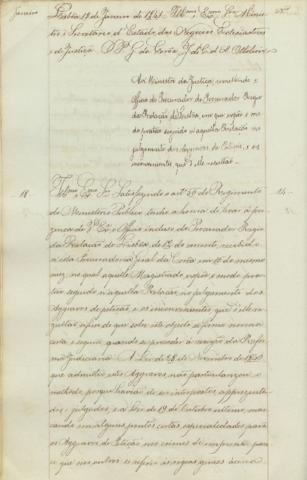 Janeiro
Lisboa 18 de Janeiro de 1841 Illmo e Exmo Sr. Minis-
tro e Secretario d'Estado dos Negocios Ecclesiasticos
e de Justiça O P. G. da Corôa J. de C. d'A. Ottolini
Ao Ministro da Justiça, remettendo o
Officio do Procurador do Procurador Regio
da Relação de Lisboa, em que expõe o mo-
do pratico seguido n'aquella Relação no
julgamento dos Aggravos de Petição, e os
inconvenientes, que d'elle resultão.
18
Illmo e Exmo Sr. Satisfazendo ao artº 26 do Regimento
do Ministerio Publico tenho a honra de levar á pre-
zença de V. Exa o Officio incluso do Procurador Regio
da Relação de Lisboa de 13 do corrente, recebido n'
esta Procuradoria Geral da Corôa em 15 do mesmo
mez, no qual aquelle Magistrado expõe o modo pra-
tico seguido n'aquella Relação no julgamento dos
Aggravos de petição, e os inconvenientes que d'elle re-
zultão, a fim de que sobre este objecto se firme norma
certa e segura, quando se proceder á revizão da Refor-
ma Judiciaria. A Lei de 28 de Novembro de 1840
que admittiu estes Aggravos, não particularizou o
methodo, porque havião de ser interpostos, apprezenta-
dos, e julgados, e a Lei de 19 de Outubro ultimo, mar-
cando em alguns pontos certas especialidades para
os Aggravos de Petição nos crimes de
o que nos outros se refere ás regras geraes ácerca